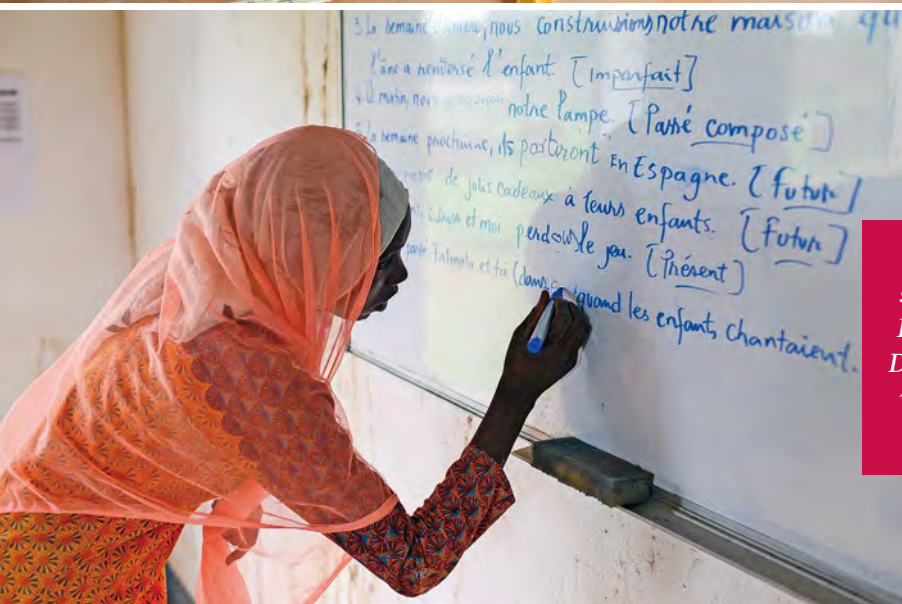 3. La semaine dernière, nous construisions notre maison qu
l'âne a renversé l'enfant. [Imparfait]
matin, nous notre lampe. [Passé composé]
5. La semaine prochaine, ils partiront En Espagne. [futur]
de jolis cadeaux à leurs enfants. [futur]
et moi perdons le jeu. [Présent]
et toi (dans quand les enfants chantaient.
D